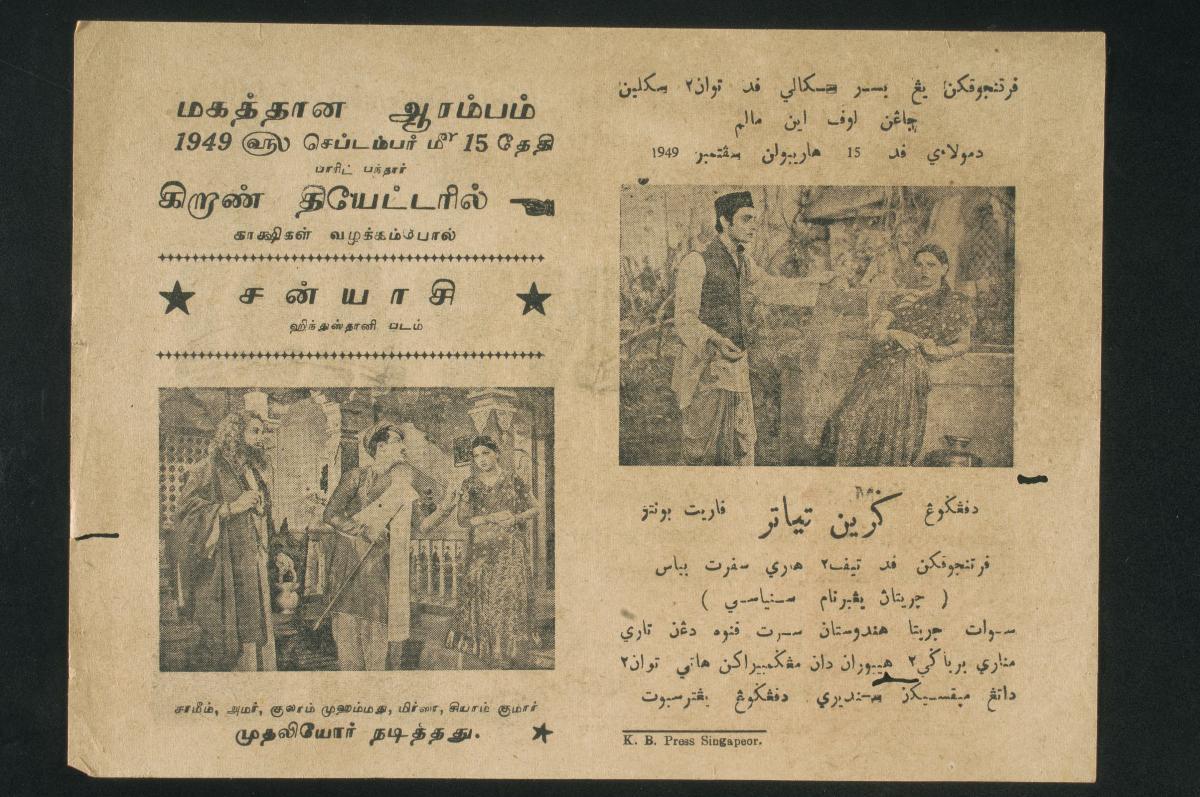 மகத்தான ஆரம்பம்
1949 ௵ செப்டம்பர் மீ 15 தேதி
பாரிட் பந்தார்
கிறூண் தியேட்டரில்
காக்ஷிகள் வழக்கம்போல்
சன்யாசி
ஹிந்துஸ்தானி படம்
சாமீம், அமர், குலாம் முஹம்மது, மிர்ஸா, சியாம் குமார்
முதலியோர் நடித்தது.
فرتنجوقكن يڠ بسر سكالي فد توان٢ سكلين
چاڠن لوف اين مالم
دمولاءي فد 15 هاريبولن سڤتمبر 1949
دفڠكوڠ كرين تياتر فاريت بونتر
فرتنجوقكن فد تيف٢ هاري سفرت بياس
( چريتاڽ يڠبرنام سنياسي )
سوات چريتا هندوستان سرت فنوه دڠن تاري
مناري برباڬي٢ هيبوران دان مڠݢمبيراكن هاتي توان٢
داتڠ ميقسيكن سنديري دفڠكوڠ يڠترسبوت
K. B. Press Singapeor.